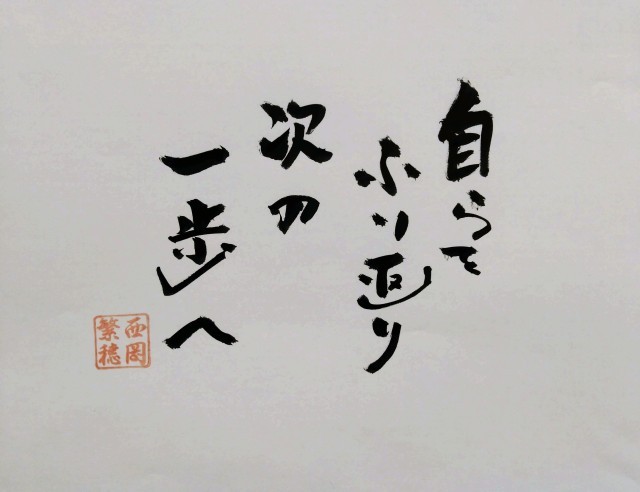 自らを
ふり返り
次の
一歩へ
西岡
繁穂